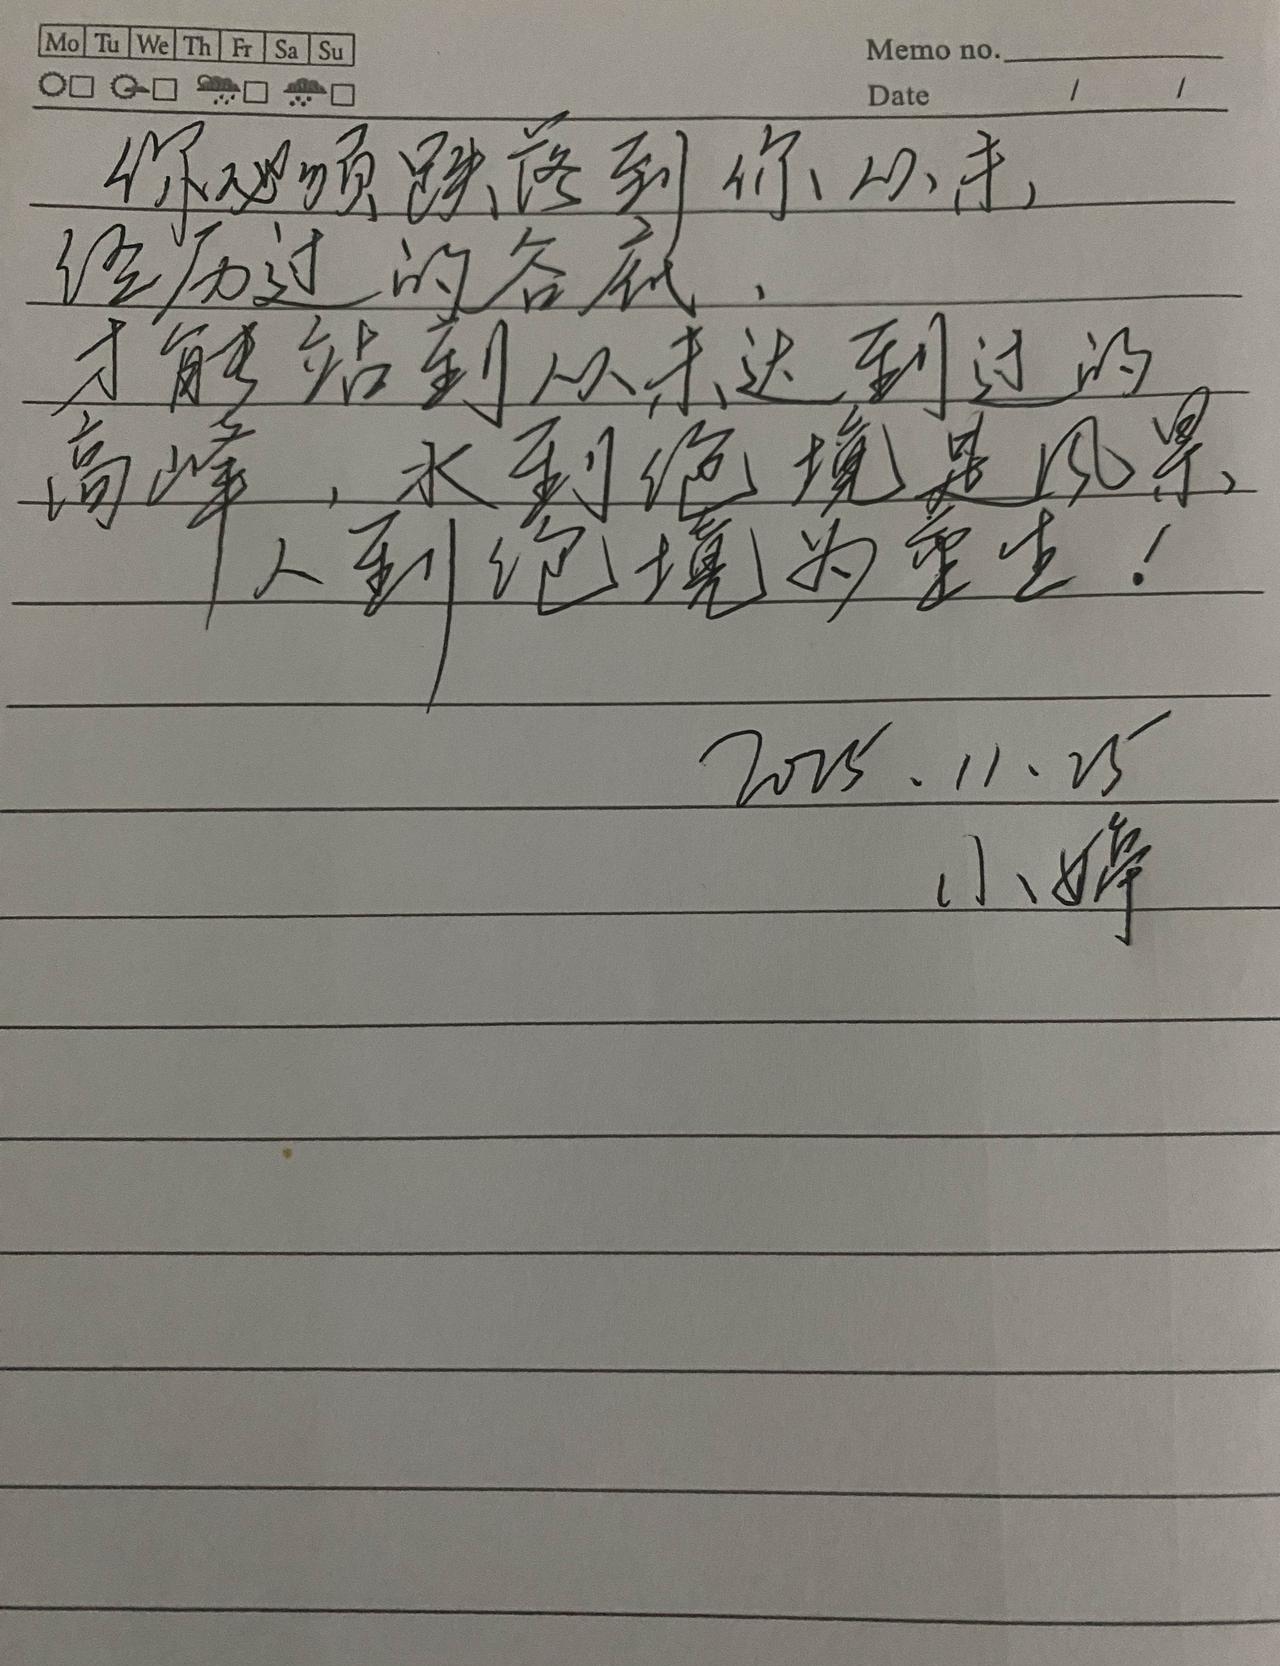 Mo Tu We Th Fr Sa Su
Memo no.
Date / /
你必须跌落到你从未
经历过的谷底、
才能站到从未达到过的
高峰，水到绝境是风景、
人到绝境为重生！
2025.11.25
小婷